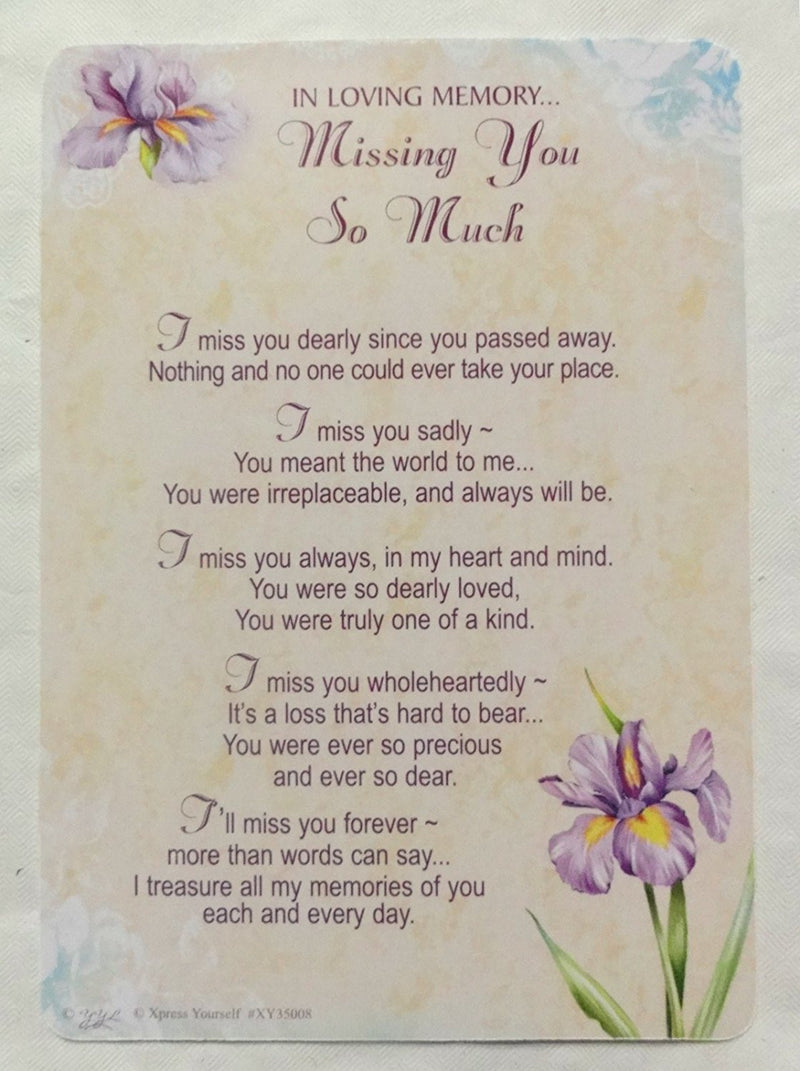 IN LOVING MEMORY...
Missing You
So Much
I miss you dearly since you passed away.
Nothing and no one could ever take your place.
I miss you sadly ~
You meant the world to me...
You were irreplaceable, and always will be.
I miss you always, in my heart and mind.
You were so dearly loved,
You were truly one of a kind.
I miss you wholeheartedly ~
It's a loss that's hard to bear...
You were ever so precious
and ever so dear.
I'll miss you forever ~
more than words can say...
I treasure all my memories of you
each and every day.
© © Xpress Yourself #XY35008